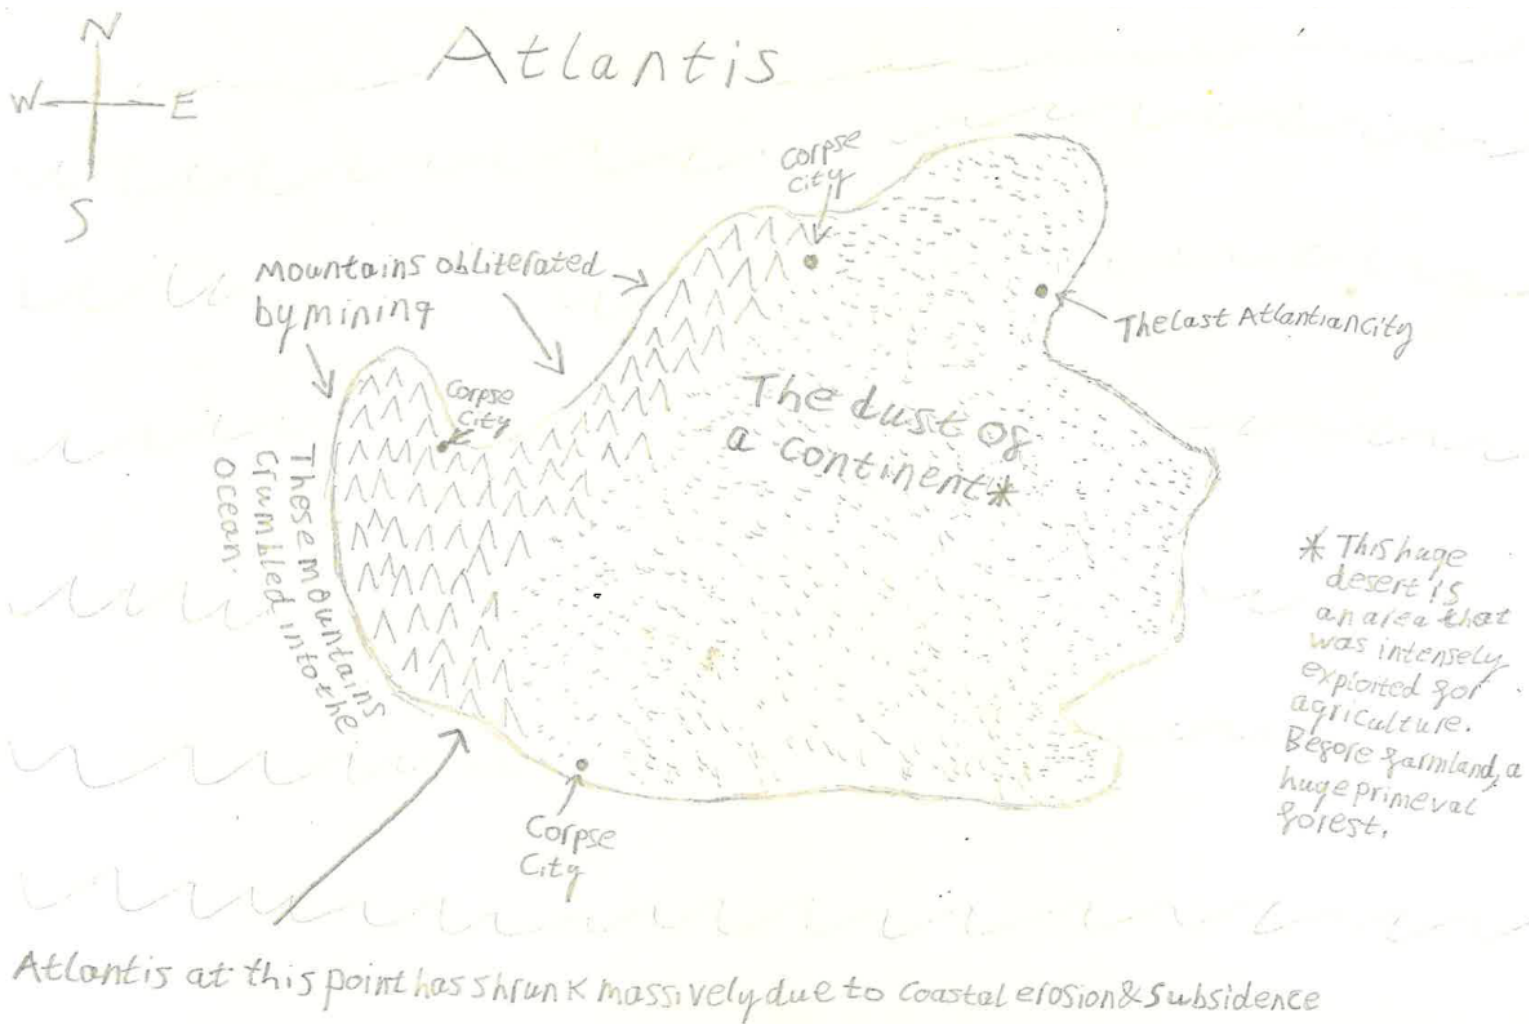 Atlantis
N
W E
S
Corpse
City
Mountains obliterated
by mining
The last Atlantian City
Corpse
City
The dust of
a continent*
These mountains
crumbled into the
ocean.
* This huge
desert is
an area that
was intensely
exploited for
agriculture.
Before farmland, a
huge primeval
forest.
Corpse
City
Atlantis at this point has shrunk massively due to coastal erosion & subsidence